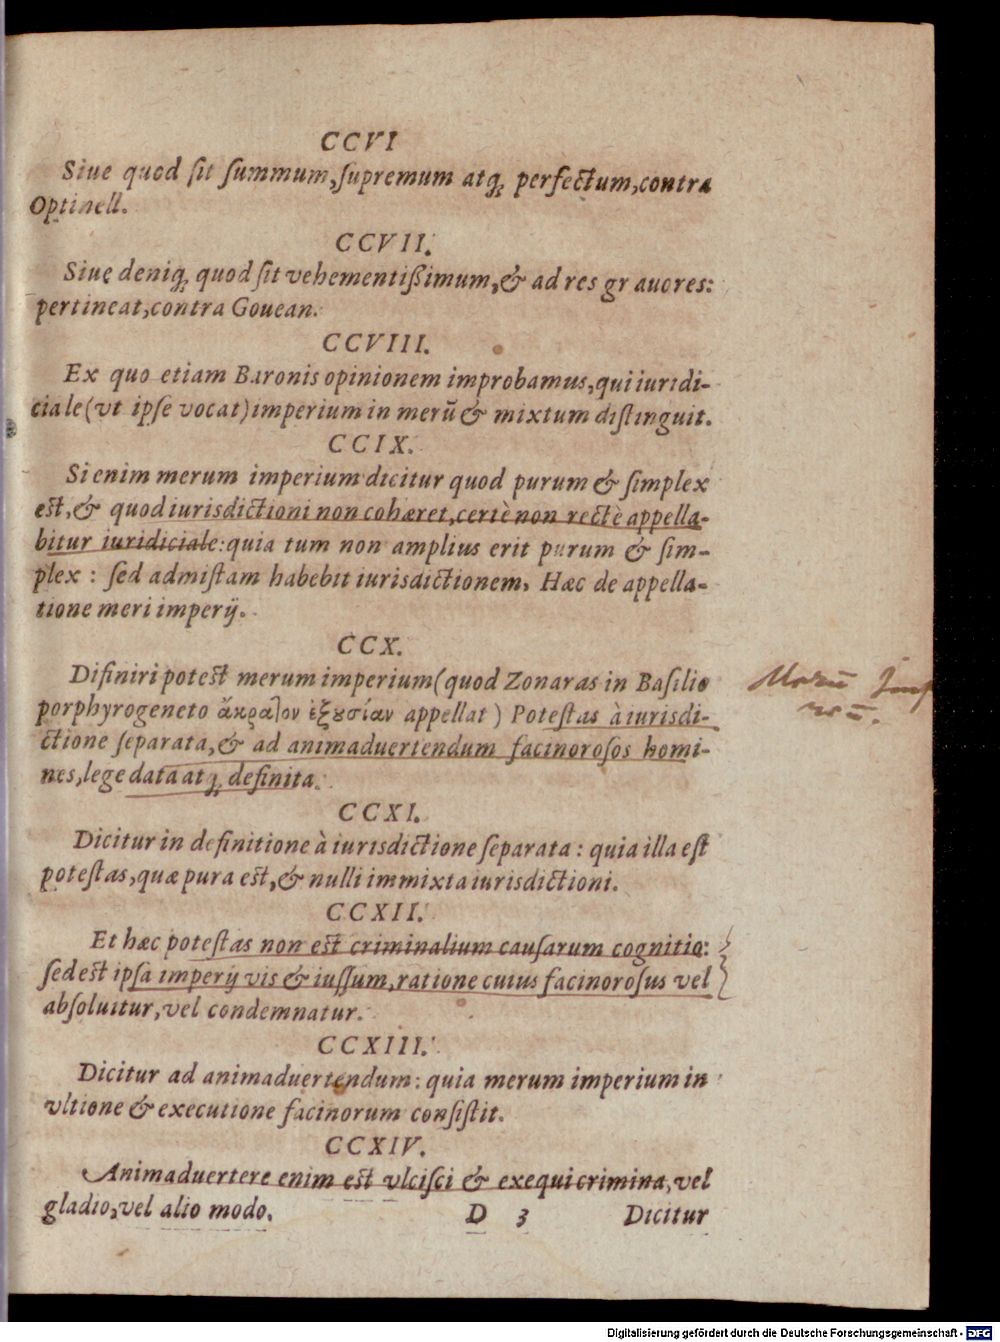 CCVI
Siue quod sit summum, supremum atq; perfectum, contra
Optinell.
CCVII.
Siue deniq; quod sit vehementißimum, & ad res grauores:
pertineat, contra Gouean.
CCVIII.
Ex quo etiam Baronis opinionem improbamus, qui iuridi-
ciale (vt ipse vocat) imperium in merũ & mixtum distinguit.
CCIX.
Si enim merum imperium dicitur quod purum & simplex
est, & quod iurisdictioni non cohæret, certè non rectè appella-
bitur iuridiciale: quia tum non amplius erit purum & sim-
plex: sed admistam habebit iurisdictionem, Hæc de appella-
tione meri imperij.
CCX.
Difiniri potest merum imperium (quod Zonaras in Basilio
porphyrogeneto ἄκραῖον ἐξουσίαν appellat) Potestas à iurisdi-
ctione separata, & ad animaduertendum facinorosos homi-
nes, lege data atq; definita.
CCXI.
Dicitur in definitione à iurisdictione separata: quia illa est
potestas, quæ pura est, & nulli immixta iurisdictioni.
CCXII.
Et hæc potestas non est criminalium causarum cognitio:
sed est ipsa imperij vis & iussum, ratione cuius facinorosus vel
absoluitur, vel condemnatur.
CCXIII.
Dicitur ad animaduertendum: quia merum imperium in
vltione & executione facinorum consistit.
CCXIV.
Animaduertere enim est vlcisci & exequi crimina, vel
gladio, vel alio modo.
D 3 Dicitur
Digitalisierung gefördert durch die Deutsche Forschungsgemeinschaft - DFG